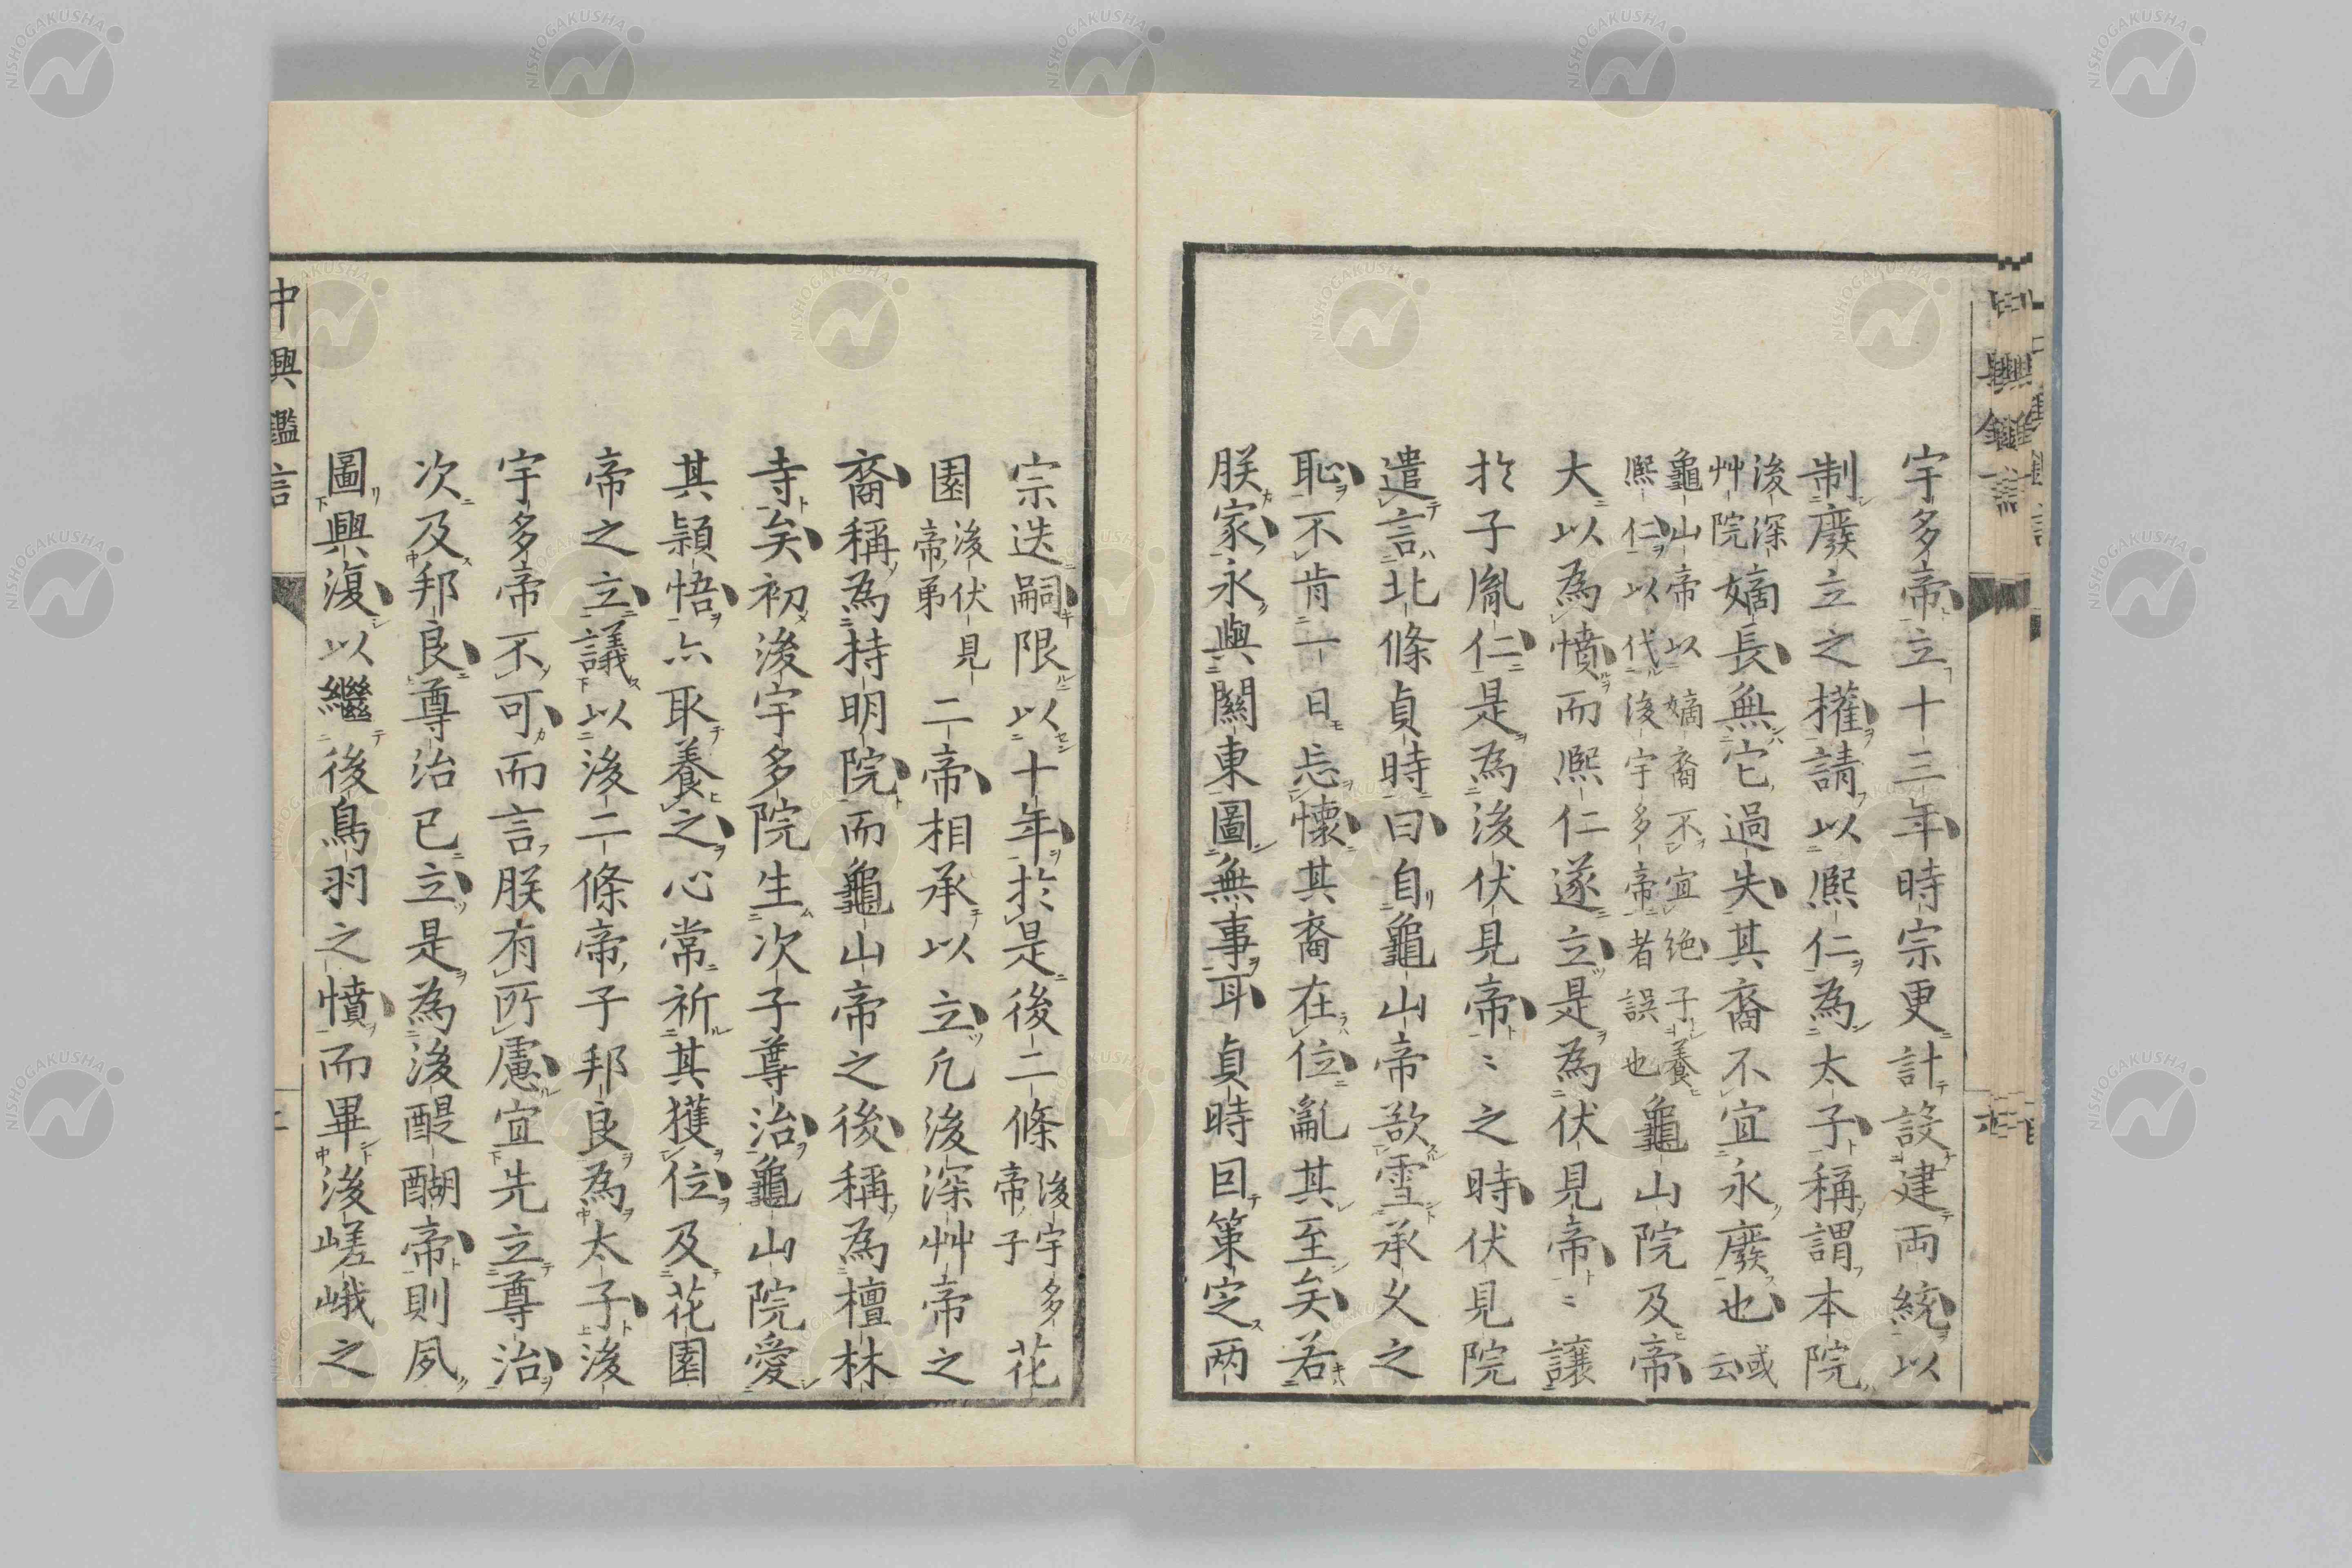 宇多帝立十三年時宗更計設建両統以
制廢立之權請以熈仁為太子稱謂本院
後深艸院嫡長無它過失其裔不宜永廢也或云
龜山帝以嫡裔不宜絶子養熈仁以代後宇多帝者誤也龜山院及帝
大以為憤而熈仁遂立是為伏見帝〻讓
於子胤仁是為後伏見帝〻之時伏見院
遣言北條貞時曰自龜山帝欲雪承久之
恥不肯一日忘懷其裔在位亂其至矣若
朕家永與關東圖無事耳貞時回策定两
宗迭嗣限以十年於是後二條後宇多帝子花
園後伏見帝弟二帝相承以立凡後深艸帝之
裔稱為持明院而龜山帝之後稱為檀林
寺矣初後宇多院生次子尊治龜山院愛
其頴悟六取養之心常祈其獲位及花園
帝之立議以後二條帝子邦良為太子後
宇多帝不可而言朕有所慮宜先立尊治
次及邦良尊治已立是為後醍醐帝則夙
圖興復以繼後鳥羽之憤而畢後嵯峨之
中興鑑言
NISHOGAKUSHA